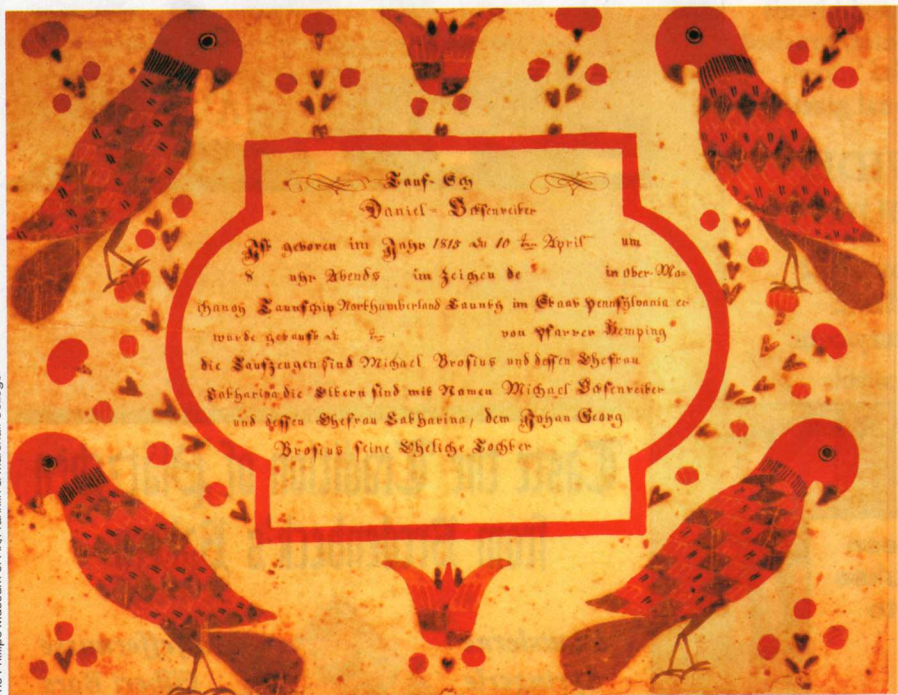 Tauf-Sch
Daniel Bosenreiter
Ist geboren im Jahr 1815 de 10 te April um
8 uhr Abends im Zeichen de in Ober-Ma-
chanoy Taunschip Northumberland Caunty im Staat Pennsylvania er
wurde getauft de te von Pfarrer Hemping
die Taufzeugen sind Michael Brosius und dessen Ehefrau
Catharina die Eltern sind mit Namen Michael Bosenreiter
und dessen Ehefrau Catharina, dem Johan Georg
Brosius seine Eheliche Tochter